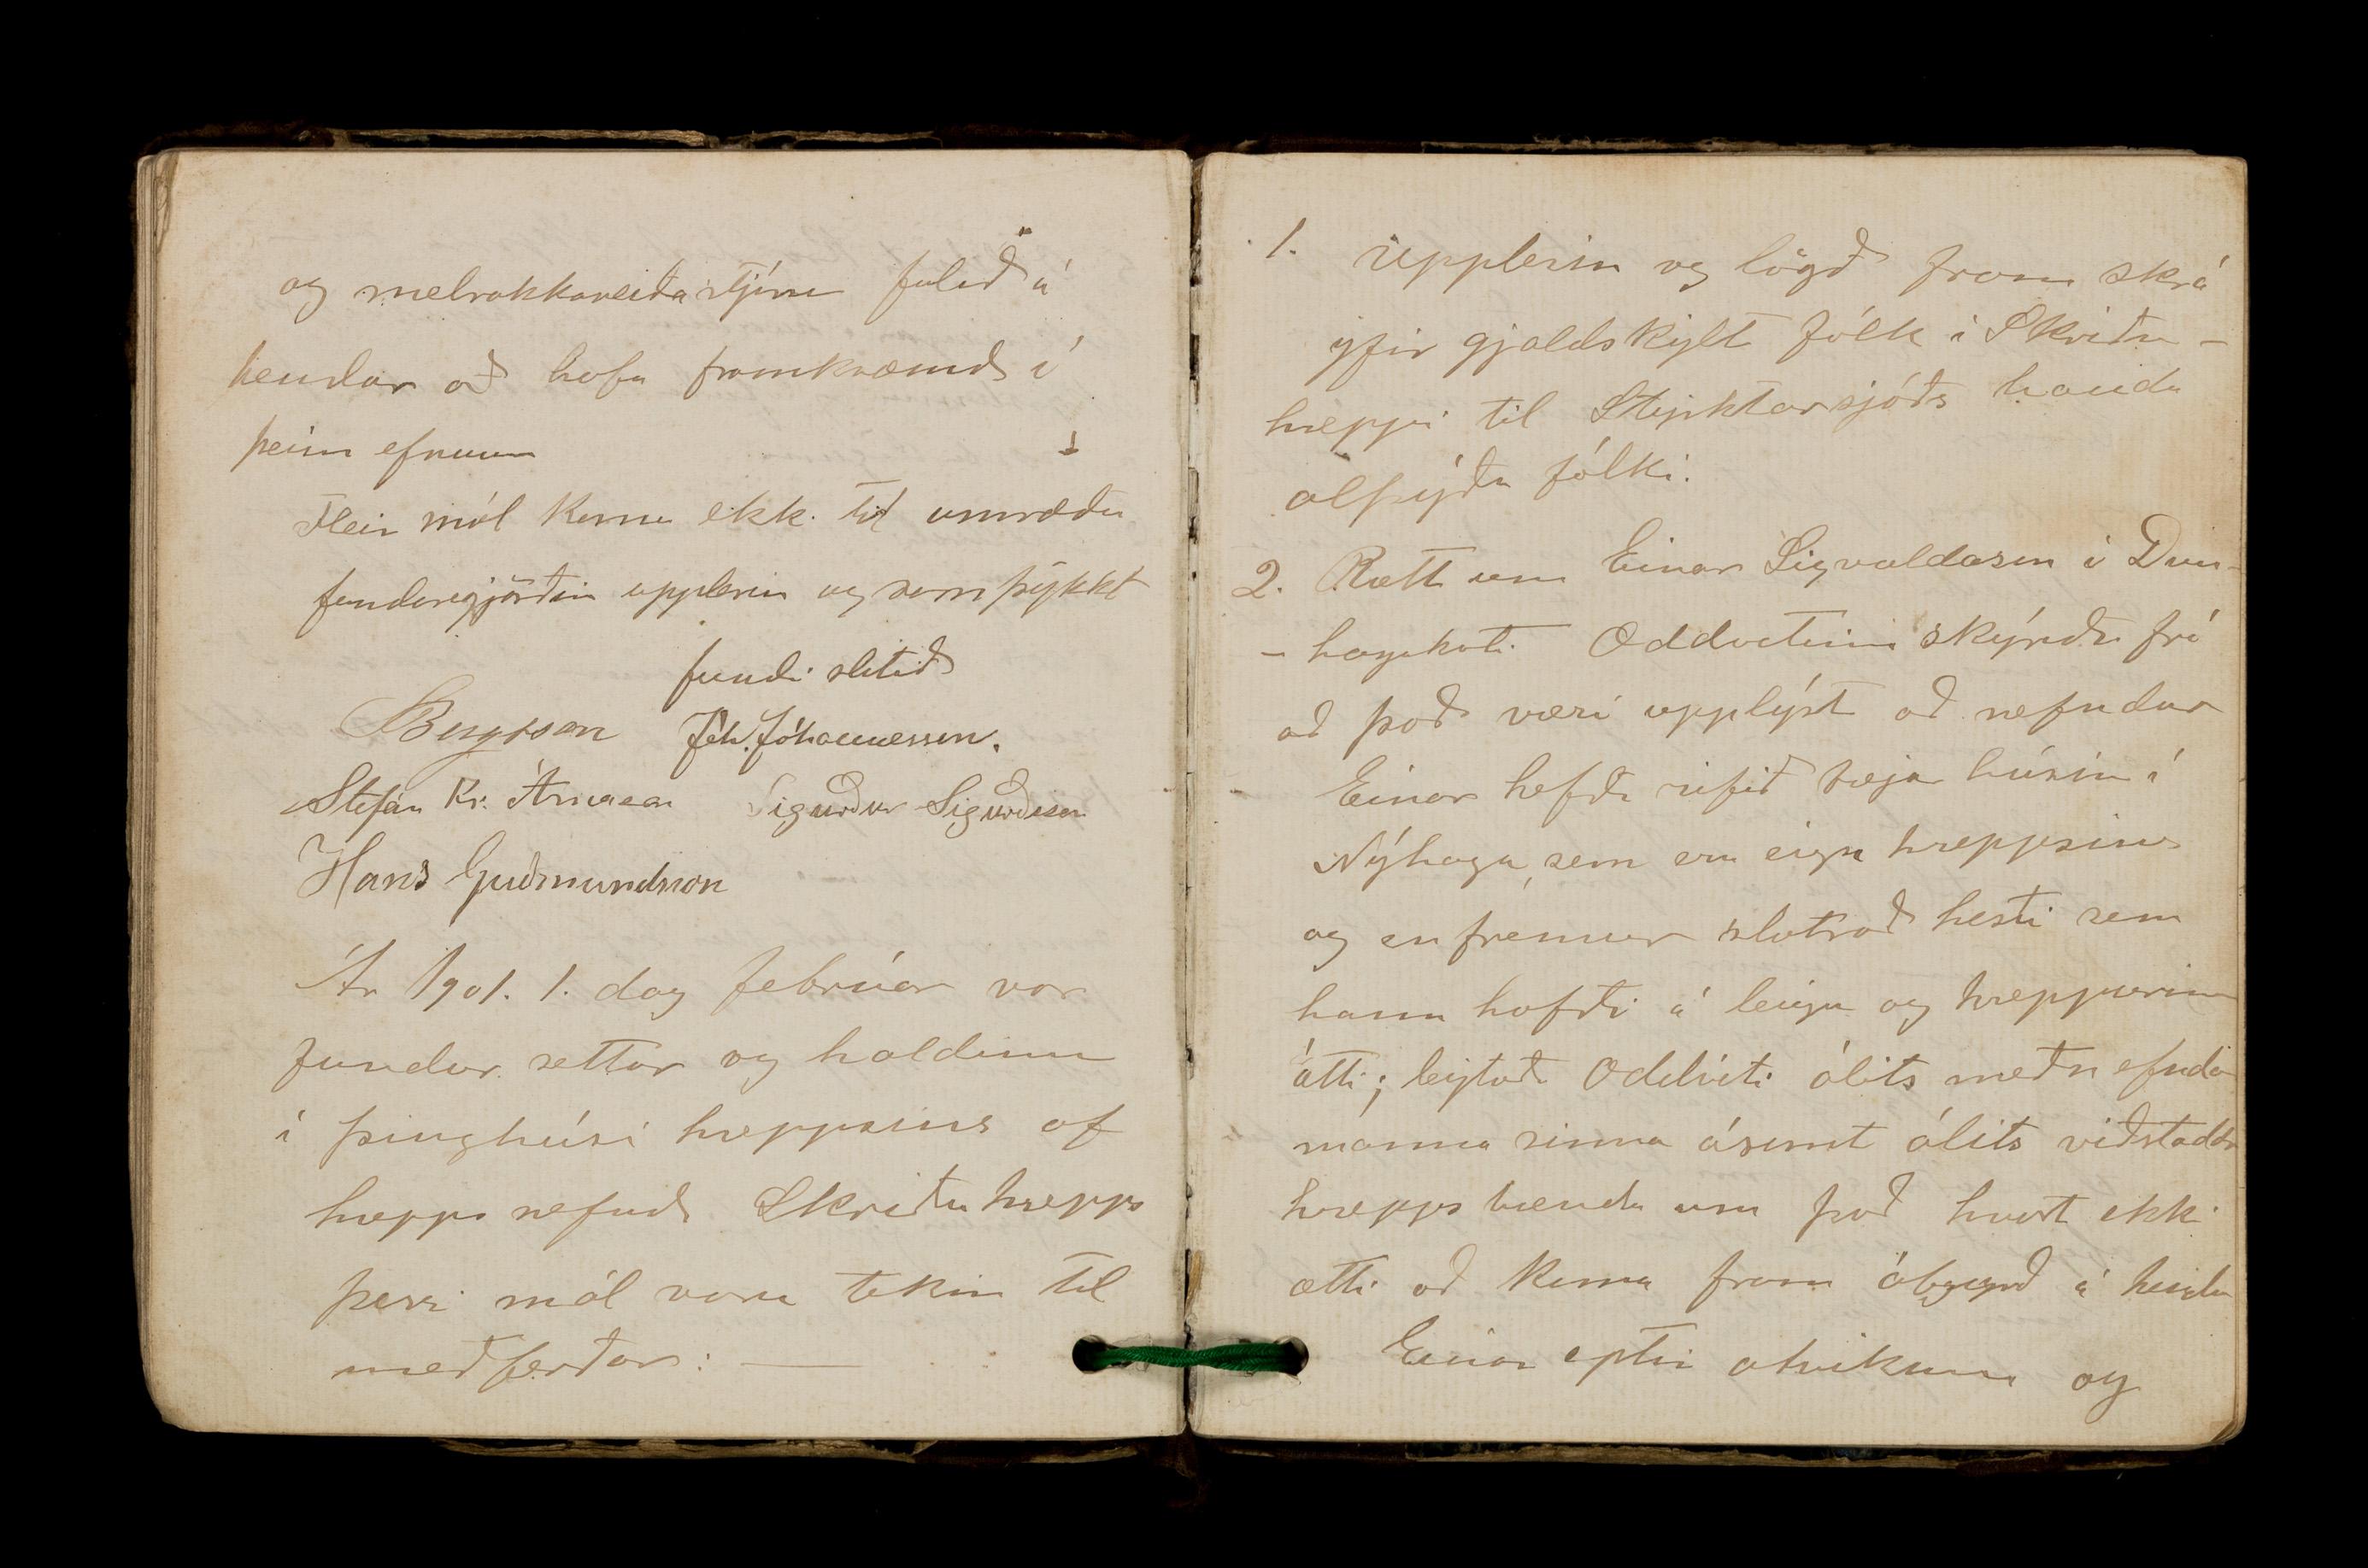 og melrakkaveiðastjórn falið á
hendur að hafa framkvæmd í
þeim efnum
Fleiri mál komu ekki til umræðu
fundargjörðin upplesin og samþykkt
fundi slitið
Bergsson Jóh. Jóhannesson.
Stefán Kr. Árnason Sigurður Sigurðsson
Hans Guðmundsson
Ár 1901. 1. dag febrúar var
fundur settur og haldinn
í þinghúsi hreppsins af
hreppsnefnd Skriðuhrepps
þessi mál voru tekin til
meðferðar: —
1. Upplesin og lögð fram skrá
yfir gjaldskylt fólk í Skriðu-
hreppi til Styrktarsjóðs handa
alþýðu fólki.
2. Rætt um Einar Sigvaldason í Dun-
- hagakoti. Oddvitinn skýrði frá
að það væri upplýst að nefndur
Einar hefði rifið bæjar húsin í
Nýhaga, sem eru eign hreppsins
og enfremur slátrað hesti sem
hann hafði á leigu og hreppurinn
átti; leytaði Oddviti álits meðnefnda
manna sinna ásamt álits viðstaddra
hrepps bænda um það hvort ekki
ætti að koma fram ábyrgð á hendur
Einar eptir atvikum og